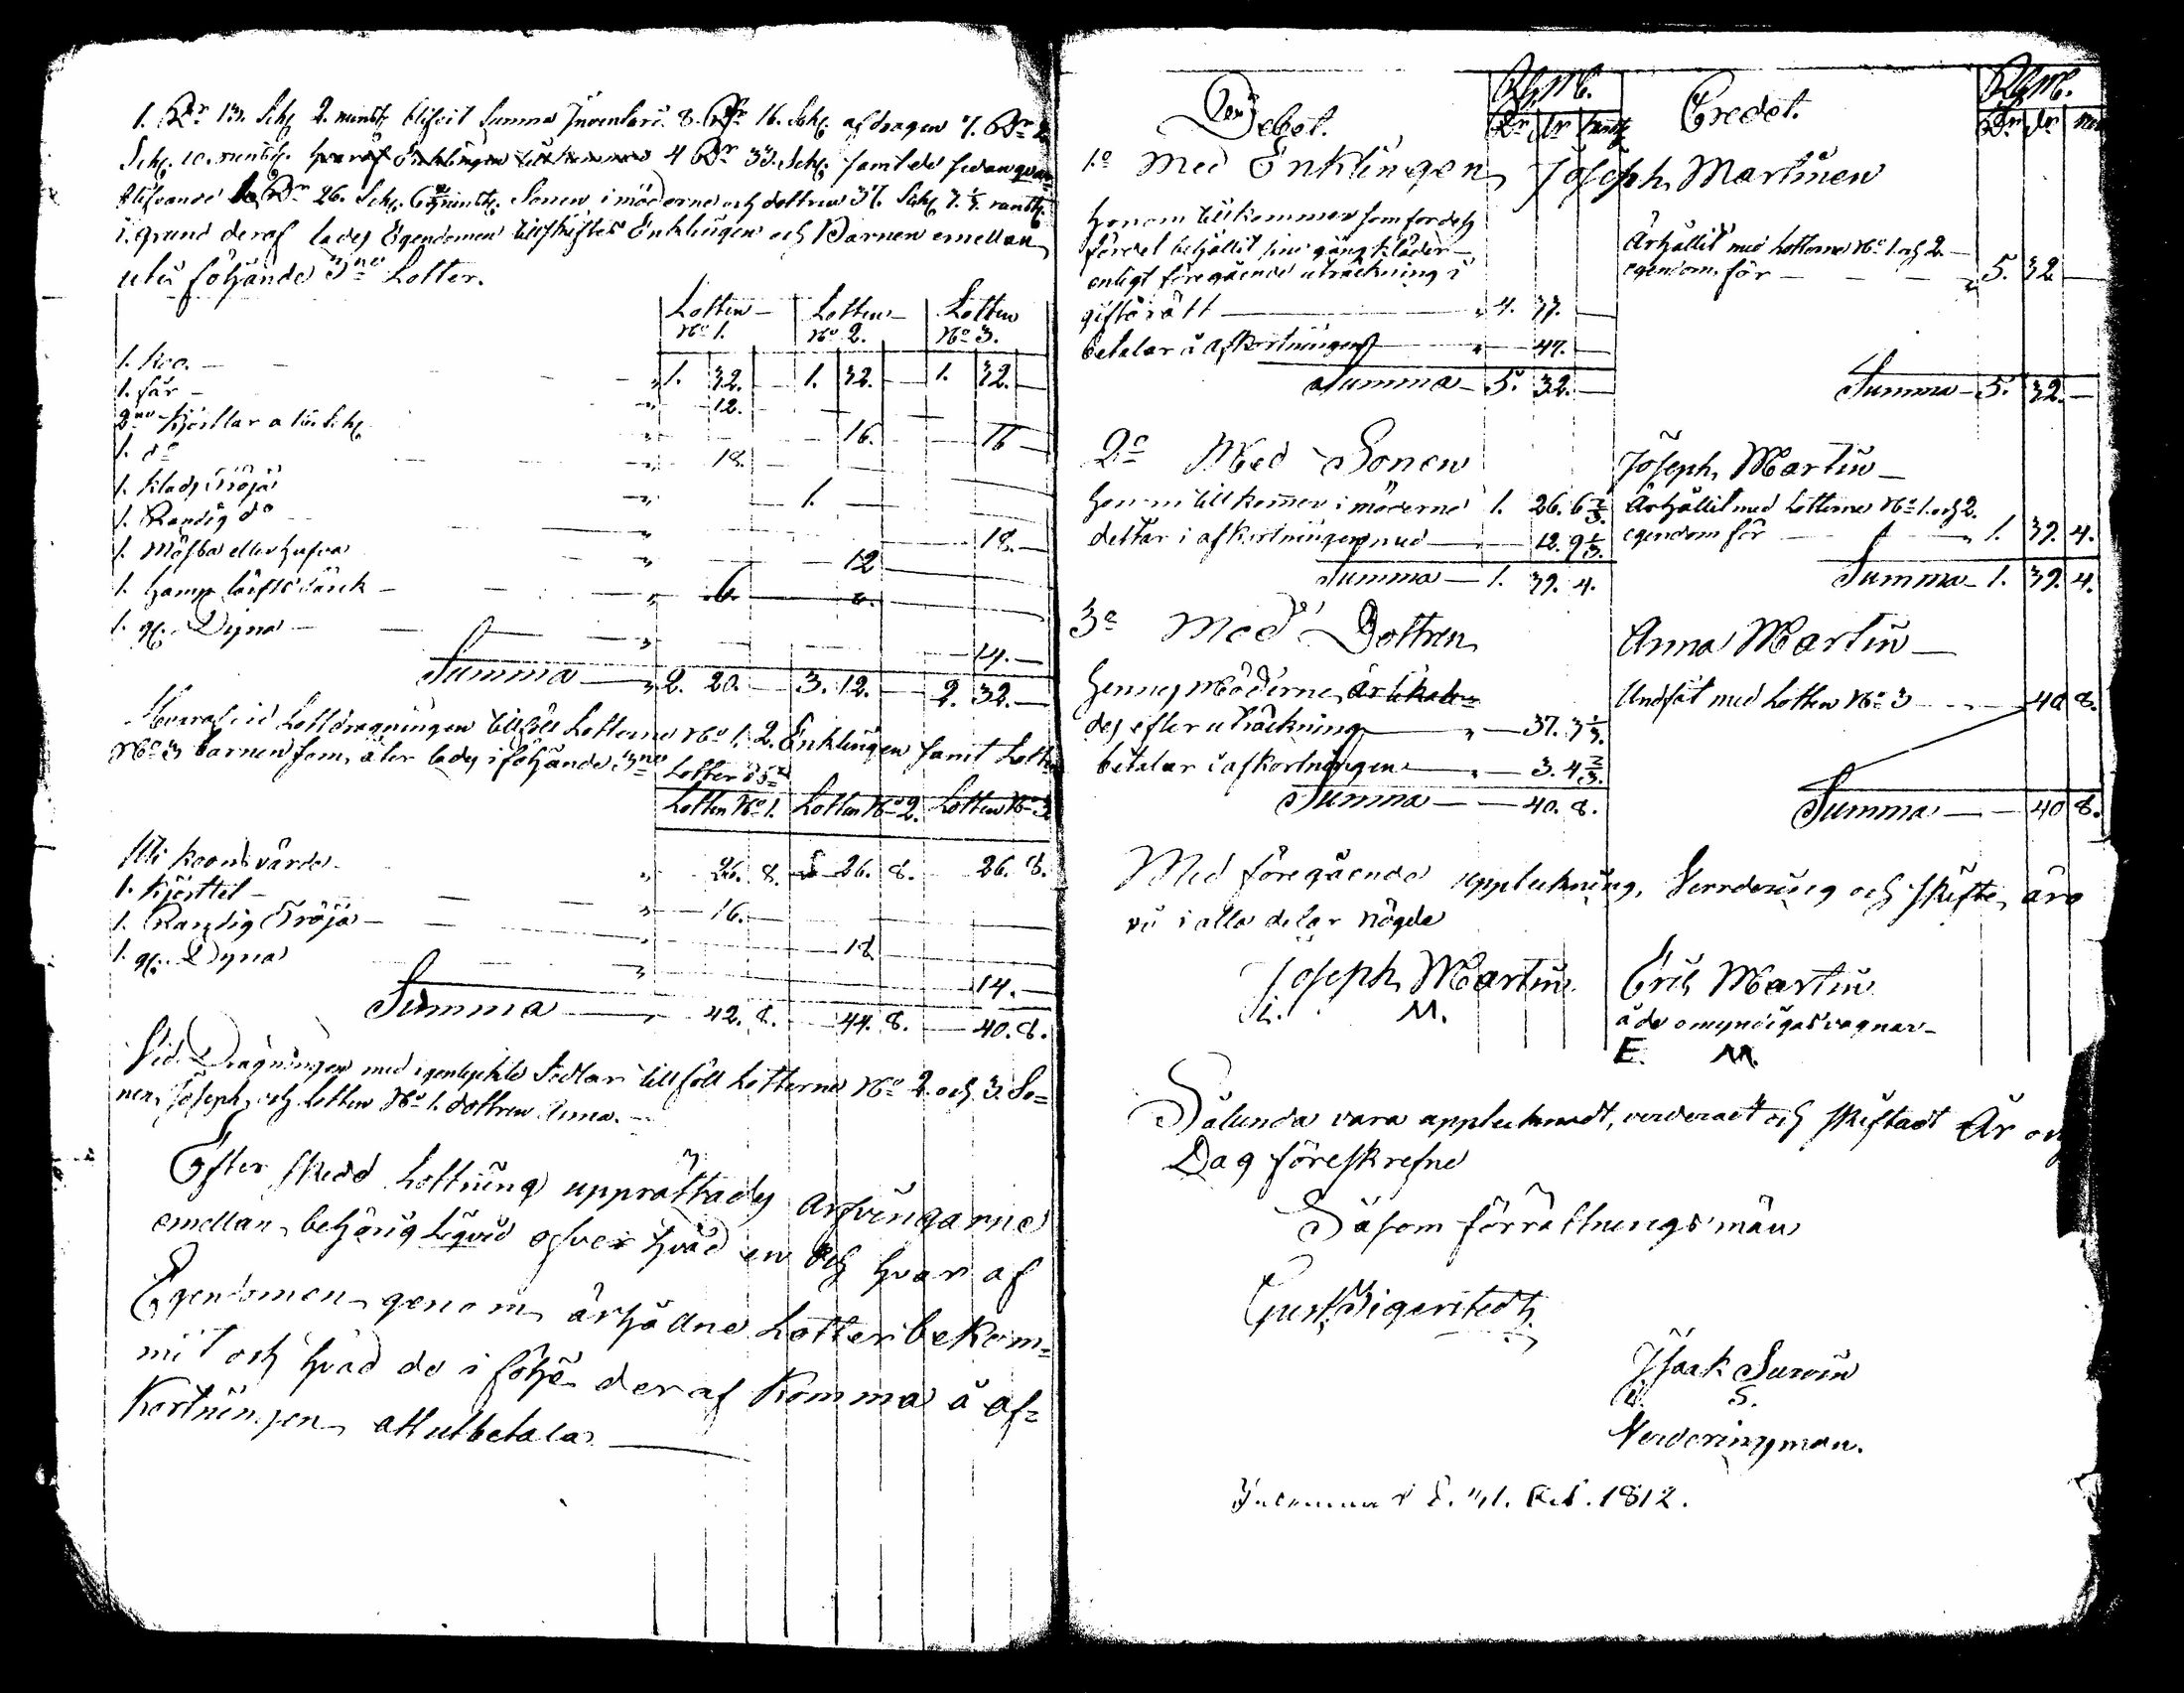 1. Rdr 13. Sch. 2. runst. blifvit Summa Inventarii. 8. Rdr 16. Sch. afdragen 7. Rdr 2
Sch. 10. runst. hvaraf Enklingen tillkommer 4 Rdr 33. Sch. samt de sedan qvar=
blifvande Rdr 26. Sch. 6 2/3 runst. Sonen i möderne och dottren 37. Sch. 3. 1/3. runst.
i grund deraf lades Egendomen till skiftes Enklingen och Barnen emellan
uti följande 3ne Lotter.
Lotten No 1. Lotten No 2. Lotten No 3.
1. Koo. — 1. 32. — 1. 32. — 1. 32. —
1. får — 12. —
2ne Kjortlar a 16. Sch. 16. — 16 —
1. do 18. —
1. Klädes Tröja 1. —
1. Randig do 18. —
1. Mössa eller hufva 12
1. Hamp lärfts särck — 6. 8.
1. gl. Dyna — 14. —
Summa — 2. 20. — 3. 12. — 2. 32. —
Hvaraf vid Lottdragningen tillföll Lotterne No 1. 2. Enklingen samt Lotten
No 3 barnen som åter lades i följande 3ne
Lotter
Lotten No 1. Lotten No 2. Lotten No 3
Uti koons värde — 26. 8. 26. 8. 26. 8.
1. Kjorttel — 16. —
1. Randig Tröja — 18
1. gl. Dyna 14. —
Summa — 42. 8. — 44. 8. — 40. 8.
Vid Dragningen med igenlyckte Sedlar tillföll Lotterne No 2 och 3. So=
nen Joseph och Lotten No 1. dottren Anna. —
Efter skedd Lottning upprättades arfvingarne
emellan behörig Liqvid öfver hvad en och hvar af
Egendomen genom ärhållne Lotter bekom=
mit och hvad de i följe deraf komma i af=
kortningen att utbetala —
Debet. Rgs. Mt. Rdr Sr runst Credet. Rgs. Mt. Rdr Sr run
1o Med Enklingen Joseph Martinen
Honom tillkommer som fordels
fördel behållit sine gång kläder — Ärhållit med Lotterne No 1. och 2. —
enligt föregående uträckning i egendom för — 5. 32 —
giftorätt — 4. 33. —
betalar i afkortningen — 47. —
Summa — 5. 32. — Summa — 5. 32. —
2o Med Sonen Joseph Martin —
honom tillkommer i möderne 1. 26. 6 2/3. Ärhållit med Lotterne No 1. och 2.
dettar i afkortningen med — 12. 9 1/3. egendom för — 1. 39. 4.
Summa — 1. 39. 4. Summa — 1. 39. 4.
3o Med Dottren Anna Martin —
Hennes Möderne Undfåt med Lotten No 3 — 40 8.
des efter uträckning — 37. 3 1/3.
betalar i afkortningen — 3. 4 2/3.
Summa — 40. 8. Summa — 40 8.
Med föregående uppteckning, Värdering och skifte, äro
vi i alla delar nögde
Joseph Martin Erik Martin
M. å de omyndigas vägnar —
E. M.
Sålunda vara uppteknadt, verderadt och skiftadt År och
Dag föreskrefne
Såsom förrättningsmän
Gust. Sigerstedt
Isaak Survin
S.
Verderingsman.
1812.